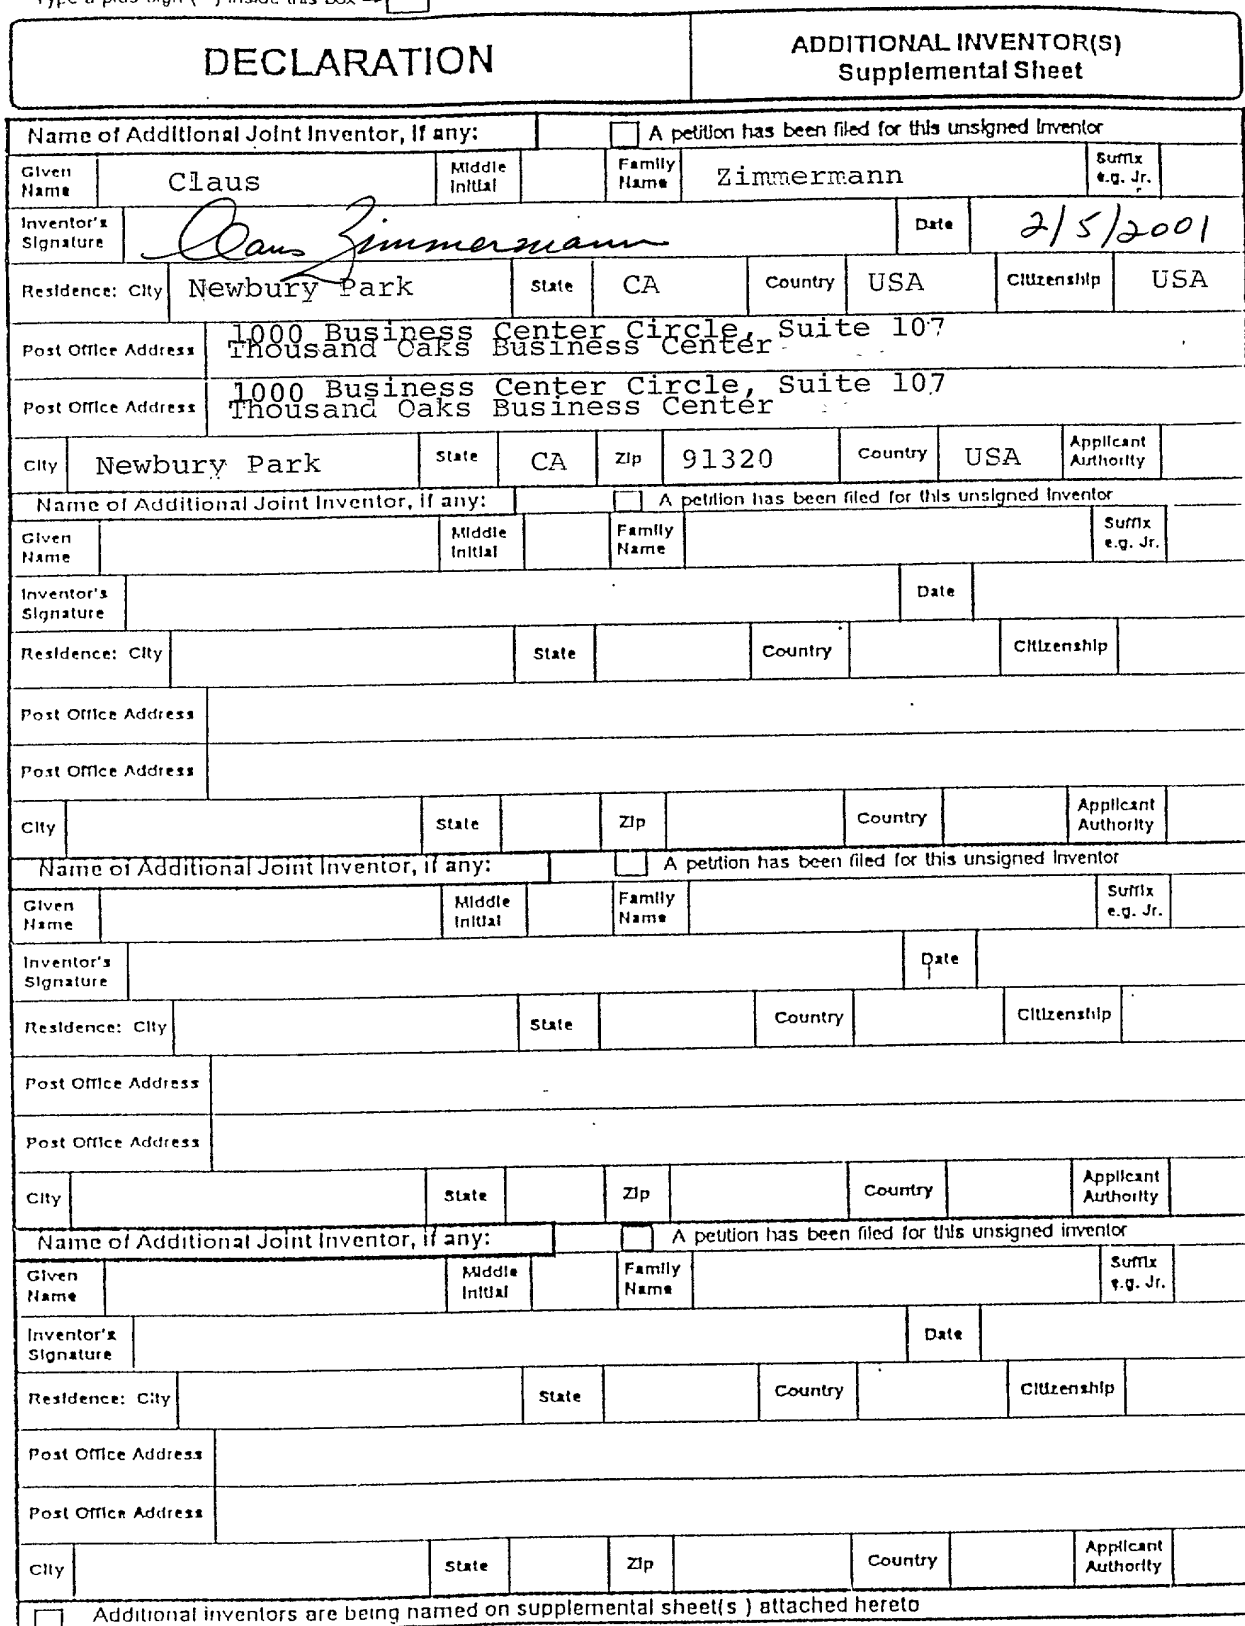 Type a plus sign (+) inside this box →
DECLARATION
ADDITIONAL INVENTOR(S)
Supplemental Sheet
Name of Additional Joint Inventor, if any:
A petition has been filed for this unsigned inventor
Given Name Claus Middle Initial Family Name Zimmermann Suffix e.g. Jr.
Inventor's Signature Claus Zimmermann Date 2/5/2001
Residence: City Newbury Park State CA Country USA Citizenship USA
Post Office Address 1000 Business Center Circle, Suite 107
Thousand Oaks Business Center
Post Office Address 1000 Business Center Circle, Suite 107
Thousand Oaks Business Center
City Newbury Park State CA Zip 91320 Country USA Applicant Authority
Name of Additional Joint Inventor, if any:
A petition has been filed for this unsigned inventor
Given Name Middle Initial Family Name Suffix e.g. Jr.
Inventor's Signature Date
Residence: City State Country Citizenship
Post Office Address
Post Office Address
City State Zip Country Applicant Authority
Name of Additional Joint Inventor, if any:
A petition has been filed for this unsigned inventor
Given Name Middle Initial Family Name Suffix e.g. Jr.
Inventor's Signature Date
Residence: City State Country Citizenship
Post Office Address
Post Office Address
City State Zip Country Applicant Authority
Name of Additional Joint Inventor, if any:
A petition has been filed for this unsigned inventor
Given Name Middle Initial Family Name Suffix e.g. Jr.
Inventor's Signature Date
Residence: City State Country Citizenship
Post Office Address
Post Office Address
City State Zip Country Applicant Authority
Additional inventors are being named on supplemental sheet(s ) attached hereto